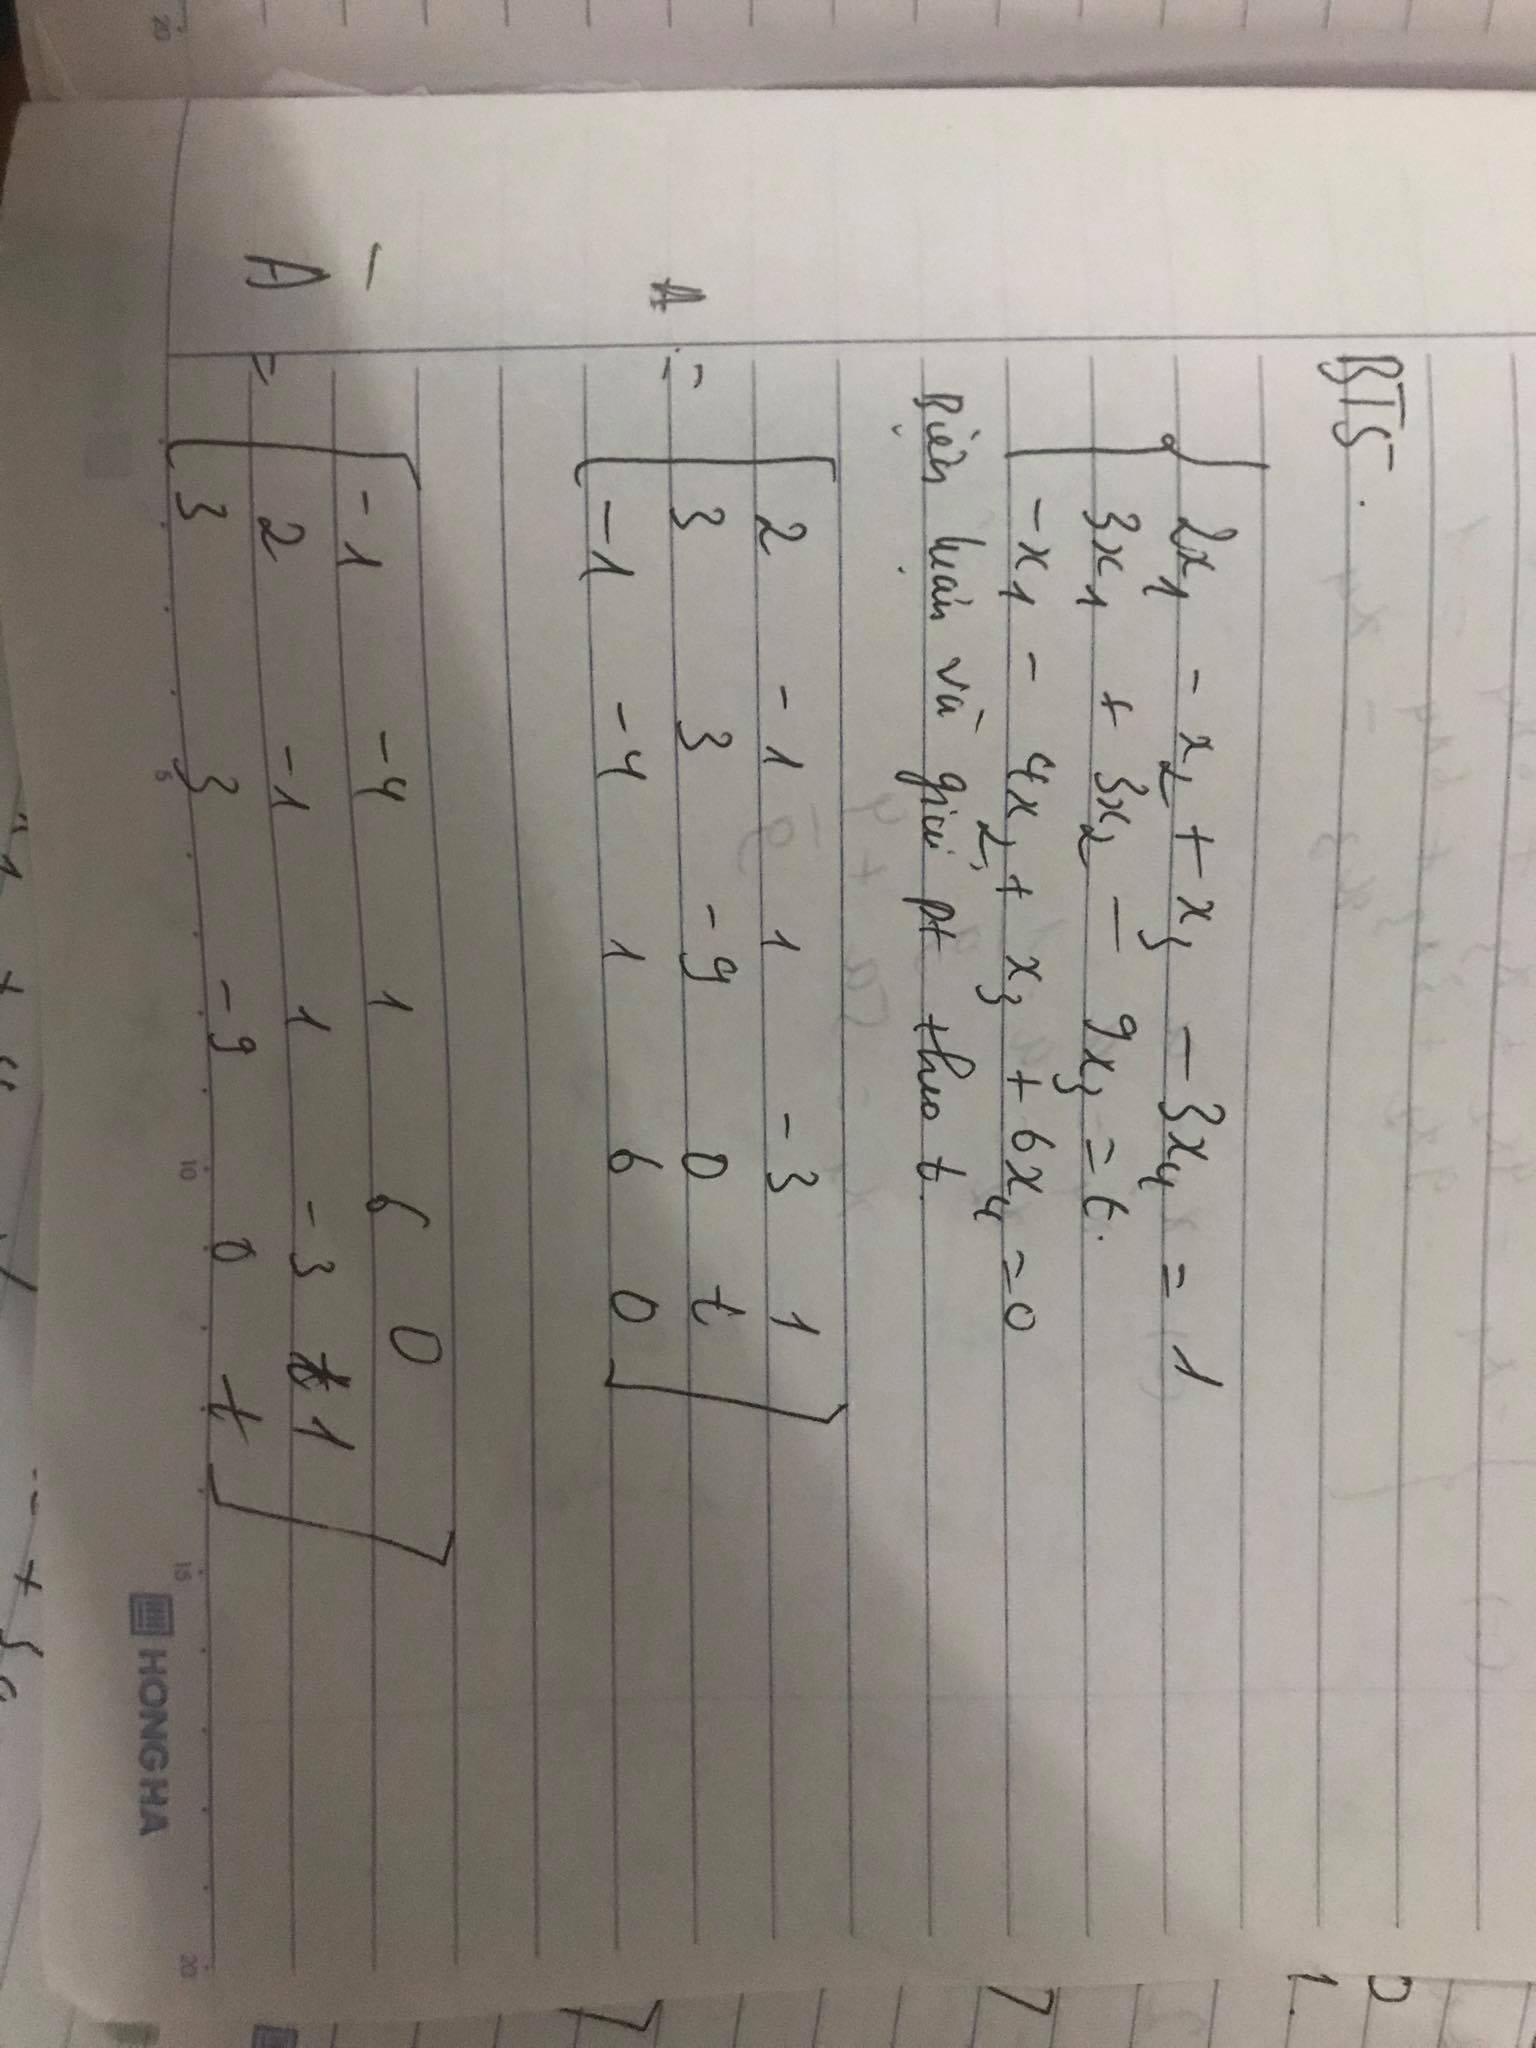 BT5.
2x₁ - x₂ + x₃ - 3x₄ = 1
3x₁ + 3x₂ - 9x₃ = t.
-x₁ - 4x₂ + x₃ + 6x₄ = 0
Biện luận và giải pt theo t.
2 -1 1 -3 1
A = 3 3 -9 0 t
-1 -4 1 6 0
-1 -4 1 6 0
Ā = 2 -1 1 -3 1
3 3 -9 0 t
20 5 10 15 20
HONG HA